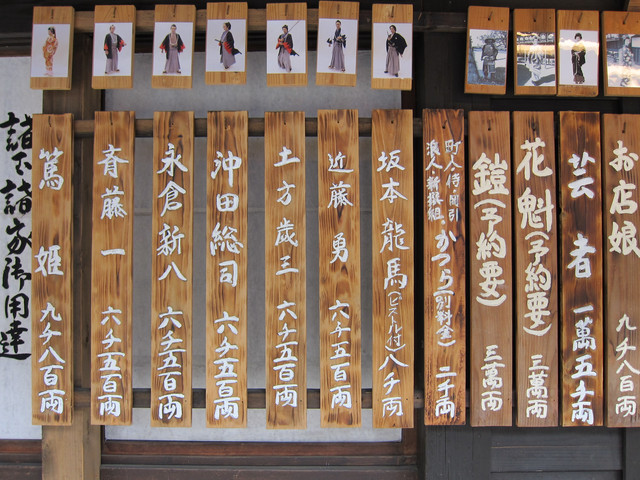 お店娘 九千八百両
芸者 一萬五千両
花魁(予約要) 三萬両
鎧(予約要) 三萬両
町人・侍・岡引
浪人・新撰組 かつら(別料金) 二千両
坂本龍馬(ピストル付)八千両
近藤勇 六千五百両
土方歳三 六千五百両
沖田総司 六千五百両
永倉新八 六千五百両
斉藤一 六千五百両
篤姫 九千八百両
諸家御用達